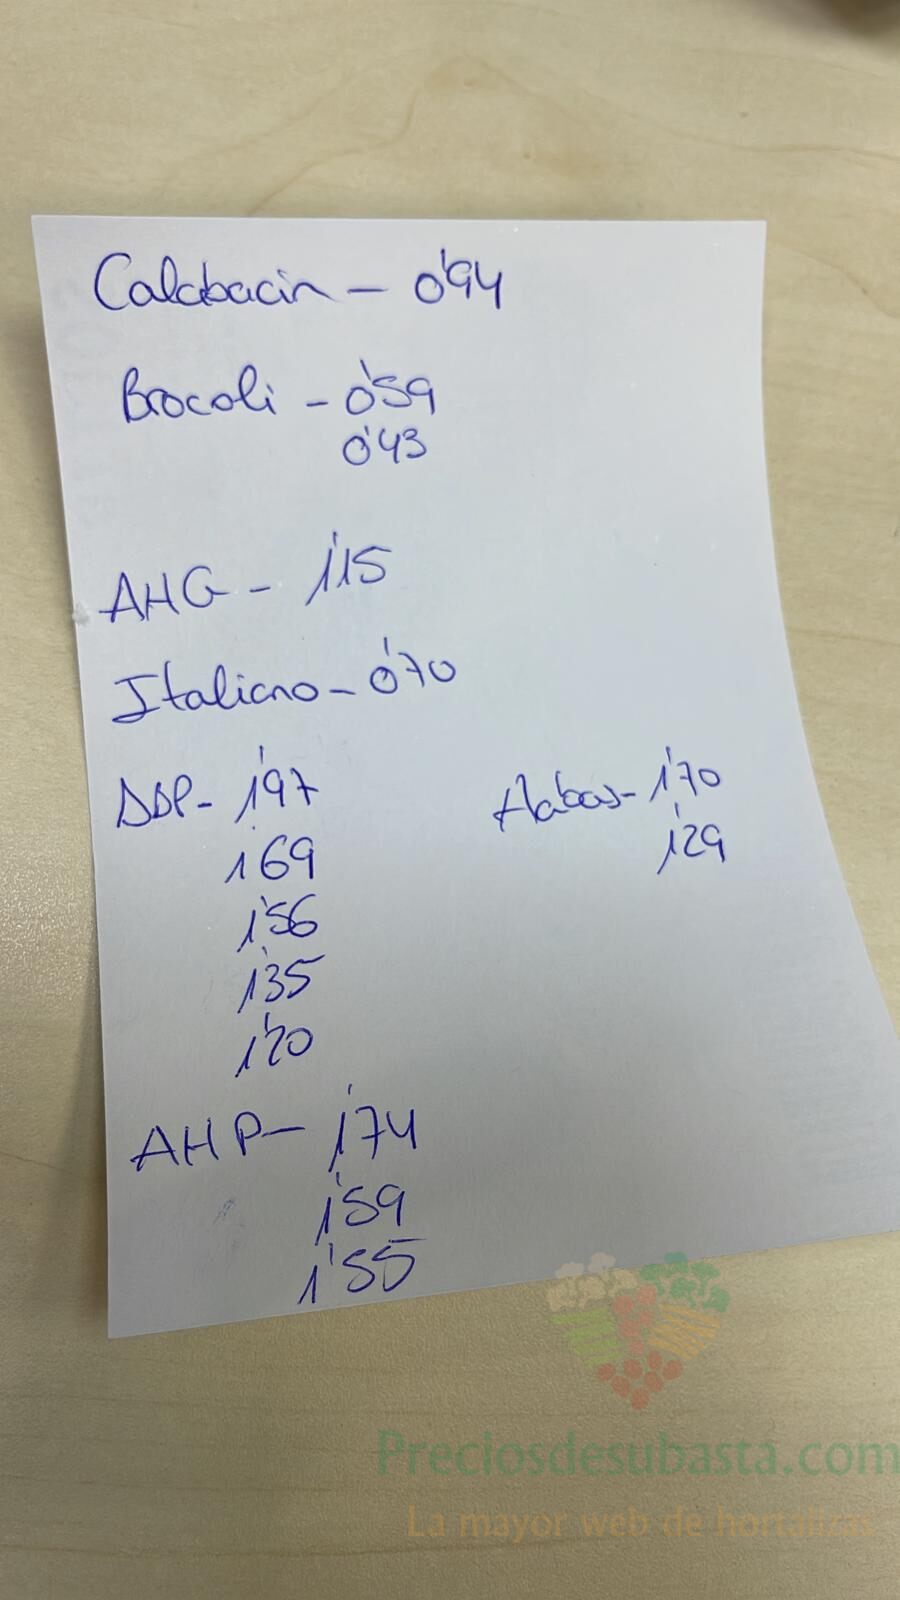 Calabacin - 0'94
Brocoli - 0'59
0'43
AHG - 1'15
Italiano - 0'70
DDP - 1'97
1'69
1'56
1'35
1'20
Habas - 1'70
1'29
AHP - 1'74
1'59
1'55
Preciosdesubasta.com
La mayor web de hortalizas